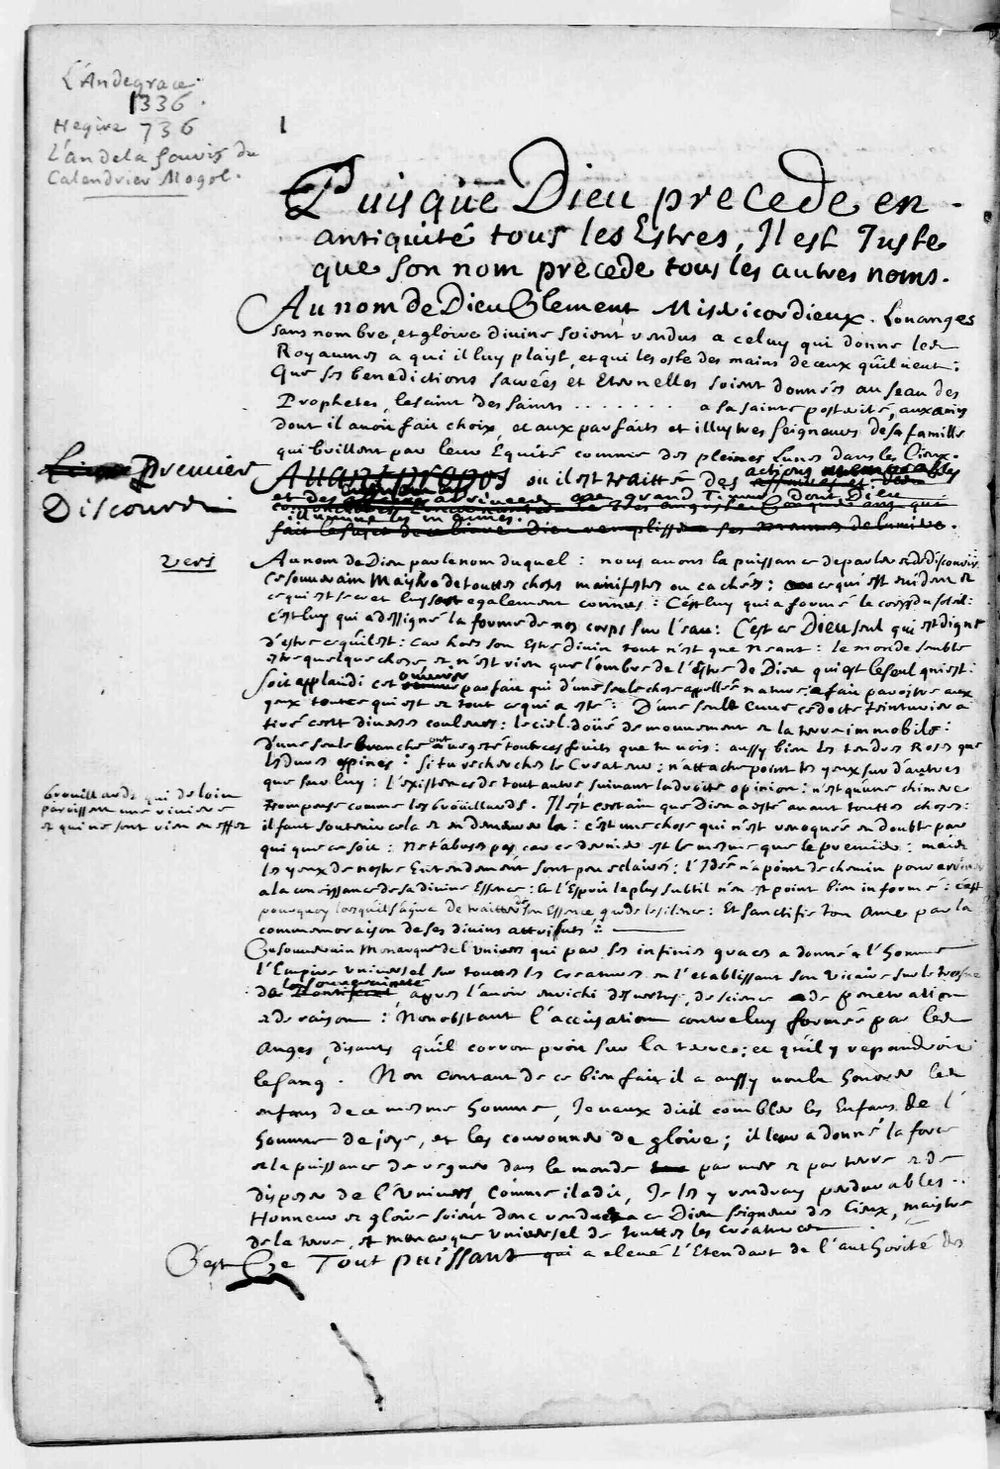 L'An de grace
1336.
Hegire 736
L'an de la souris du
Calendrier Mogol.
1
Puisque Dieu precede en
antiquité tous les Estres, Il est Juste
que son nom precede tous les autres noms.
Au nom de Dieu Clement, Misericordieux. Louanges
sans nombre, et gloire divine soient rendus a celuy qui donne les
Royaumes a qui il luy plaist, et qui les oste des mains de ceux qu'il veut:
Que ses benedictions sacrées et Eternelles soient données au seau des
Prophetes, le saint des saints ....... a sa sainte posterité, aux amis
dont il avoit fait choix, et aux parfaits et illustres seigneurs de sa famille
qui brillent par leur Equité comme des pleines Lunes dans les Cieux.
Premier
Discours
Avant propos ou il est traitté des actions
et des grand Timur dont Dieu
illumine
fait le sujet de ce livre Dieu remplisse ses manes de lumiere.
vers
Au nom de Dieu par le nom duquel: nous avons la puissance de parler et de discourir:
Ce souverain Maistre de touttes choses manifestes ou cachées: ce qui est evident et
ce qui est secret luy sont egalement connus: C'est luy qui a formé le corps du soleil:
c'est luy qui a dessigné la forme de nos corps sur l'eau: C'est ce Dieu seul qui est digne
d'estre ce qu'il est: car hors son Estre Divin tout n'est que Neant: le monde semble
estre quelque chose et n'est rien que l'ombre de l'Estre de Dieu qui est le seul qui est:
Soit applaudi cet ouvrier parfait qui d'une seule chose appellée nature a fait paroistre aux
yeux tout ce qui est et tout ce qui a esté: D'une seule cuve ce docte teinturier a
tiré cent diverses couleurs: le ciel doüé de mouvement et la terre immobile:
d'une seule branche ont vegeté tout ces fruits que tu vois: aussy bien les tendres Roses que
les dures espines: si tu recherches le Createur; n'attache point tes yeux sur d'autres
que sur luy: l'existence de tout autre, suivant la droite opinion: n'est qu'une chimere
brouillards qui de loin
paroissent une riviere
et qui ne sont rien en effet
trompeuse comme les broüillards. Il est certain que Dieu a esté avant touttes choses:
il faut soutenir cela et en demeurer la: c'est une chose qui n'est revoquée en doubte par
qui que ce soit: Ne t'abuses pas car ce dernier est le mesme que le premier: mais
les yeux de nostre Entendement sont peu eclairés: l'Idée n'a point de chemin pour arriver
a la connoissance de sa divine Essence: et l'Esprit le plus subtil n'en est point bien informé: c'est
pourquoy lorsqu'il s'agira de traitter de son Essence, garde le silence: Et sanctifie ton Ame par la
commemoraison de ses divins attributs:
Ce souverain Monarque de l'Univers qui par ses infinies graces a donné a l'homme
l'Empire universel sur touttes les creatures en l'etablissant son Vicaire sur le trosne
de la souveraineté, apres l'avoir enrichi de vertus, de science de penetration
et de raison: Nonobstant l'accusation contre luy formée par les
Anges, disants qu'il corromproit sur la terre; et qu'il y repandroit
le sang. Non contant de ce bien fait il a aussy voulu honorer les
enfans de ce mesme homme, Je veux dit il combler les Enfans de l'
homme de joye, et les couronner de gloire; il leur a donné la force
et la puissance de regner dans le monde par mer et par terre et de
disposer de l'Univers, comme il a dit, Je les y rendray perdurables..
Honneur et gloire soient donc rendus a ce Dieu seigneur des Cieux, maistre
de la terre, et monarque Universel de touttes les creatures
C'est Ce Tout puissant qui a elevé l'Etendart de l'authorité des